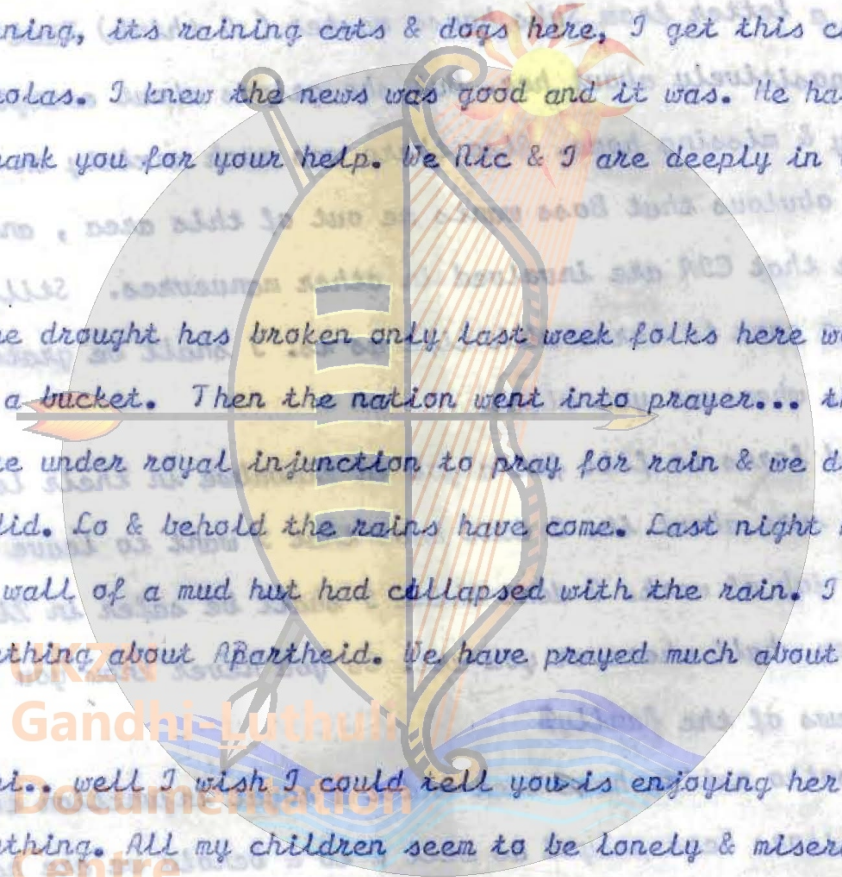 ning, its raining cats & dogs here, I get this c
olas. I knew the news was good and it was. He ha
hank you for your help. We Nic & I are deeply in
he drought has broken only last week folks here w
a bucket. Then the nation went into prayer... th
re under royal injunction to pray for rain & we d
did. Lo & behold the rains have come. Last night
wall of a mud hut had collapsed with the rain. I
thing about APartheid. We have prayed much about
i.. well I wish I could tell you is enjoying her
thing. All my children seem to be lonely & miser
UKZN
Gandhi-Luthuli
Documentation
Centre